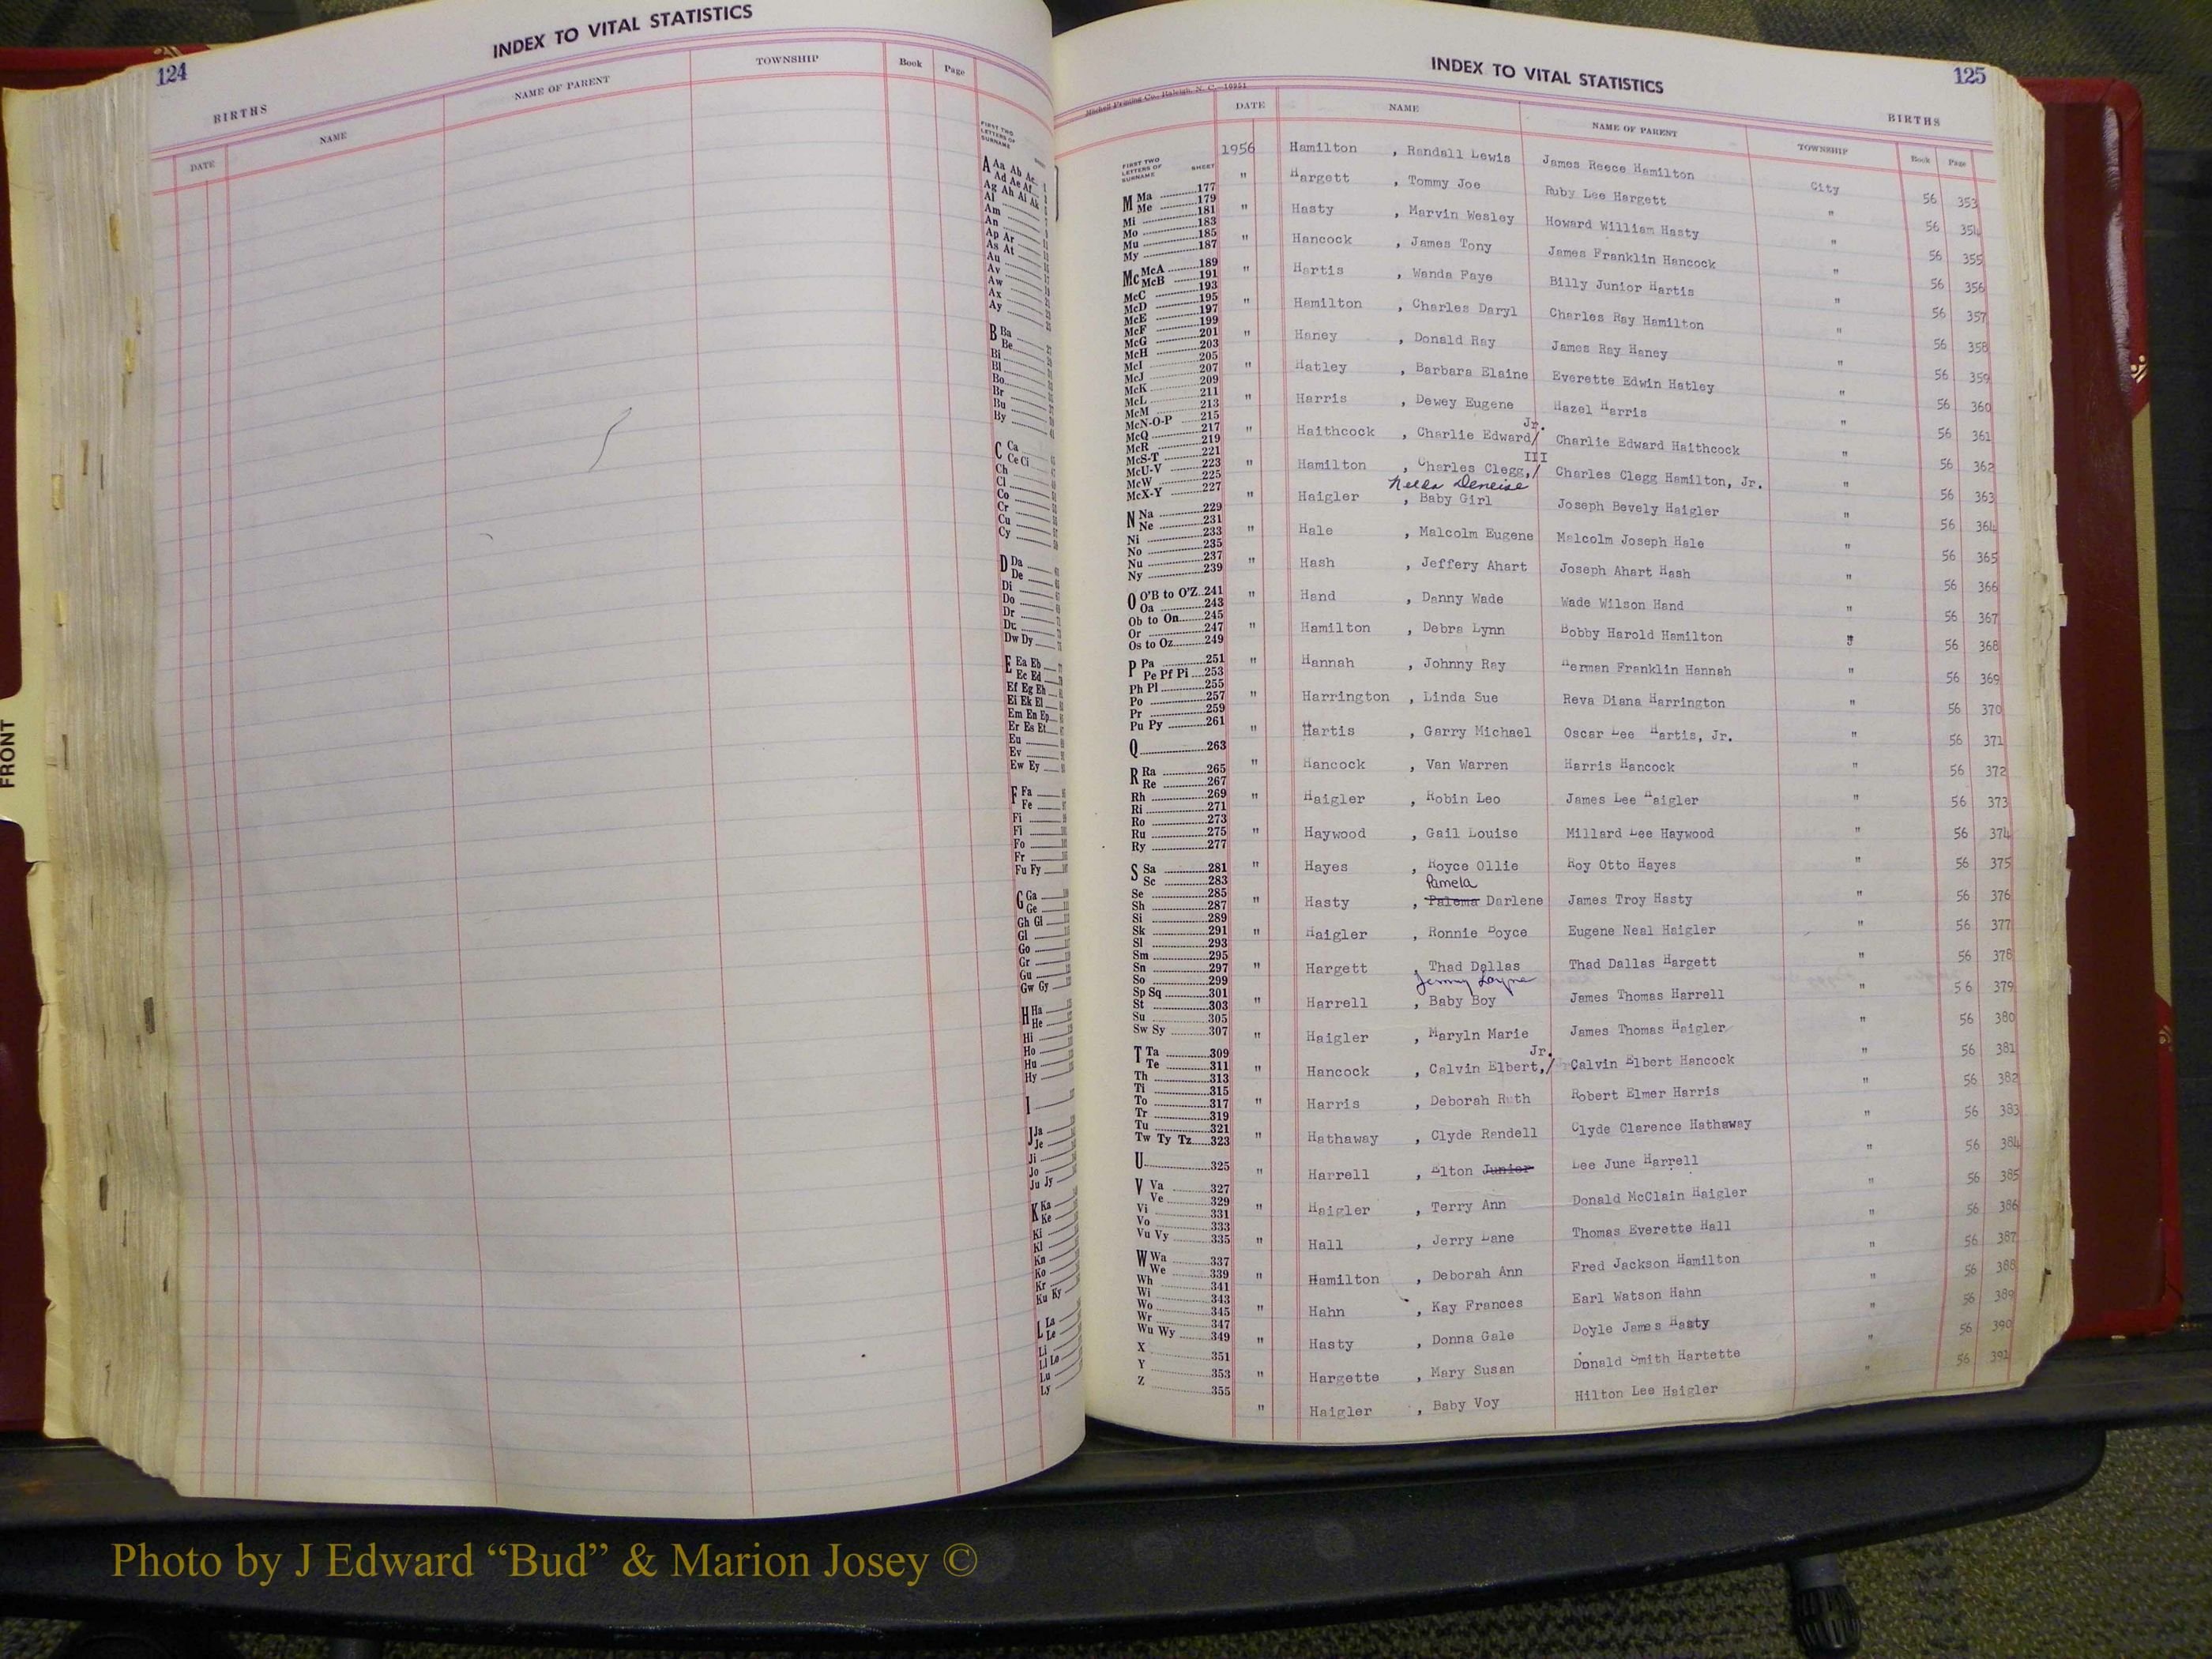 INDEX TO VITAL STATISTICS
124
BIRTHS
DATE NAME NAME OF PARENT TOWNSHIP Book Page
FIRST TWO LETTERS OF SURNAME
A Aa Ab Ac
Ad Ae Af
Ag Ah Ai Ak
Al
Am
An
Ap Ar
As At
Au
Av
Aw
Ax
Ay
B Ba
Be
Bi
Bl
Bo
Br
Bu
By
C Ca
Ce Ci
Ch
Cl
Co
Cr
Cu
Cy
D Da
De
Di
Do
Dr
Du
Dw Dy
E Ea Eb
Ec Ed
Ef Eg Eh
Ei Ek El
Em En Ep
Er Es Et
Eu
Ev
Ew Ey
F Fa
Fe
Fi
Fl
Fo
Fr
Fu Fy
G Ga
Ge
Gh Gi
Gl
Go
Gr
Gu
Gw Gy
H Ha
He
Hi
Ho
Hu
Hy
I
J Ja
Je
Ji
Jo
Ju Jy
K Ka
Ke
Ki
Kl
Kn
Ko
Kr
Ku Ky
L La
Le
Li
Ll Lo
Lu
Ly
FRONT
INDEX TO VITAL STATISTICS
125
Mitchell Printing Co., Raleigh, N. C.—19951
BIRTHS
DATE NAME NAME OF PARENT TOWNSHIP Book Page
FIRST TWO LETTERS OF SURNAME SHEET
M Ma 177
Me 179
Mi 181
Mo 183
Mu 185
My 187
Mc McA 189
McB 191
McC 193
McD 195
McE 197
McF 199
McG 201
McH 203
McI 205
McJ 207
McK 209
McL 211
McM 213
McN-O-P 215
McQ 217
McR 219
McS-T 221
McU-V 223
McW 225
McX-Y 227
N Na 229
Ne 231
Ni 233
No 235
Nu 237
Ny 239
O O'B to O'Z 241
Oa 243
Ob to On 245
Or 247
Os to Oz 249
P Pa 251
Pe Pf Pi 253
Ph Pl 255
Po 257
Pr 259
Pu Py 261
Q 263
R Ra 265
Re 267
Rh 269
Ri 271
Ro 273
Ru 275
Ry 277
S Sa 281
Sc 283
Se 285
Sh 287
Si 289
Sk 291
Sl 293
Sm 295
Sn 297
So 299
Sp Sq 301
St 303
Su 305
Sw Sy 307
T Ta 309
Te 311
Th 313
Ti 315
To 317
Tr 319
Tu 321
Tw Ty Tz 323
U 325
V Va 327
Ve 329
Vi 331
Vo 333
Vu Vy 335
W Wa 337
We 339
Wh 341
Wi 343
Wo 345
Wr 347
Wu Wy 349
X 351
Y 353
Z 355
1956 Hamilton , Randall Lewis James Reece Hamilton City 56 353
" Hargett , Tommy Joe Ruby Lee Hargett " 56 354
" Hasty , Marvin Wesley Howard William Hasty " 56 355
" Hancock , James Tony James Franklin Hancock " 56 356
" Hartis , Wanda Faye Billy Junior Hartis " 56 357
" Hamilton , Charles Daryl Charles Ray Hamilton " 56 358
" Haney , Donald Ray James Ray Haney " 56 359
" Hatley , Barbara Elaine Everette Edwin Hatley " 56 360
" Harris , Dewey Eugene Hazel Harris " 56 361
" Haithcock , Charlie Edward/ Jr. Charlie Edward Haithcock " 56 362
" Hamilton , Charles Clegg,/ III Charles Clegg Hamilton, Jr. " 56 363
Deneise
" Haigler , Baby Girl Joseph Bevely Haigler " 56 364
" Hale , Malcolm Eugene Malcolm Joseph Hale " 56 365
" Hash , Jeffery Ahart Joseph Ahart Hash " 56 366
" Hand , Danny Wade Wade Wilson Hand " 56 367
" Hamilton , Debra Lynn Bobby Harold Hamilton " 56 368
" Hannah , Johnny Ray Herman Franklin Hannah " 56 369
" Harrington , Linda Sue Reva Diana Harrington " 56 370
" Hartis , Garry Michael Oscar Lee Hartis, Jr. " 56 371
" Hancock , Van Warren Harris Hancock " 56 372
" Haigler , Robin Leo James Lee Haigler " 56 373
" Haywood , Gail Louise Millard Lee Haywood " 56 374
" Hayes , Royce Ollie Roy Otto Hayes " 56 375
Pamela
" Hasty , Palema Darlene James Troy Hasty " 56 376
" Haigler , Ronnie Boyce Eugene Neal Haigler " 56 377
" Hargett , Thad Dallas Thad Dallas Hargett " 56 378
Jimmy Layne
" Harrell , Baby Boy James Thomas Harrell " 56 379
" Haigler , Maryln Marie James Thomas Haigler " 56 380
" Hancock , Calvin Elbert,/ Jr. Calvin Elbert Hancock " 56 381
" Harris , Deborah Ruth Robert Elmer Harris " 56 382
" Hathaway , Clyde Randell Clyde Clarence Hathaway " 56 383
" Harrell , Elton Junior Lee June Harrell " 56 384
" Haigler , Terry Ann Donald McClain Haigler " 56 385
" Hall , Jerry Lane Thomas Everette Hall " 56 386
" Hamilton , Deborah Ann Fred Jackson Hamilton " 56 387
" Hahn , Kay Frances Earl Watson Hahn " 56 388
" Hasty , Donna Gale Doyle James Hasty " 56 389
" Hargette , Mary Susan Donald Smith Hartette " 56 390
" Haigler , Baby Voy Hilton Lee Haigler " 56 391
Photo by J Edward “Bud” & Marion Josey ©